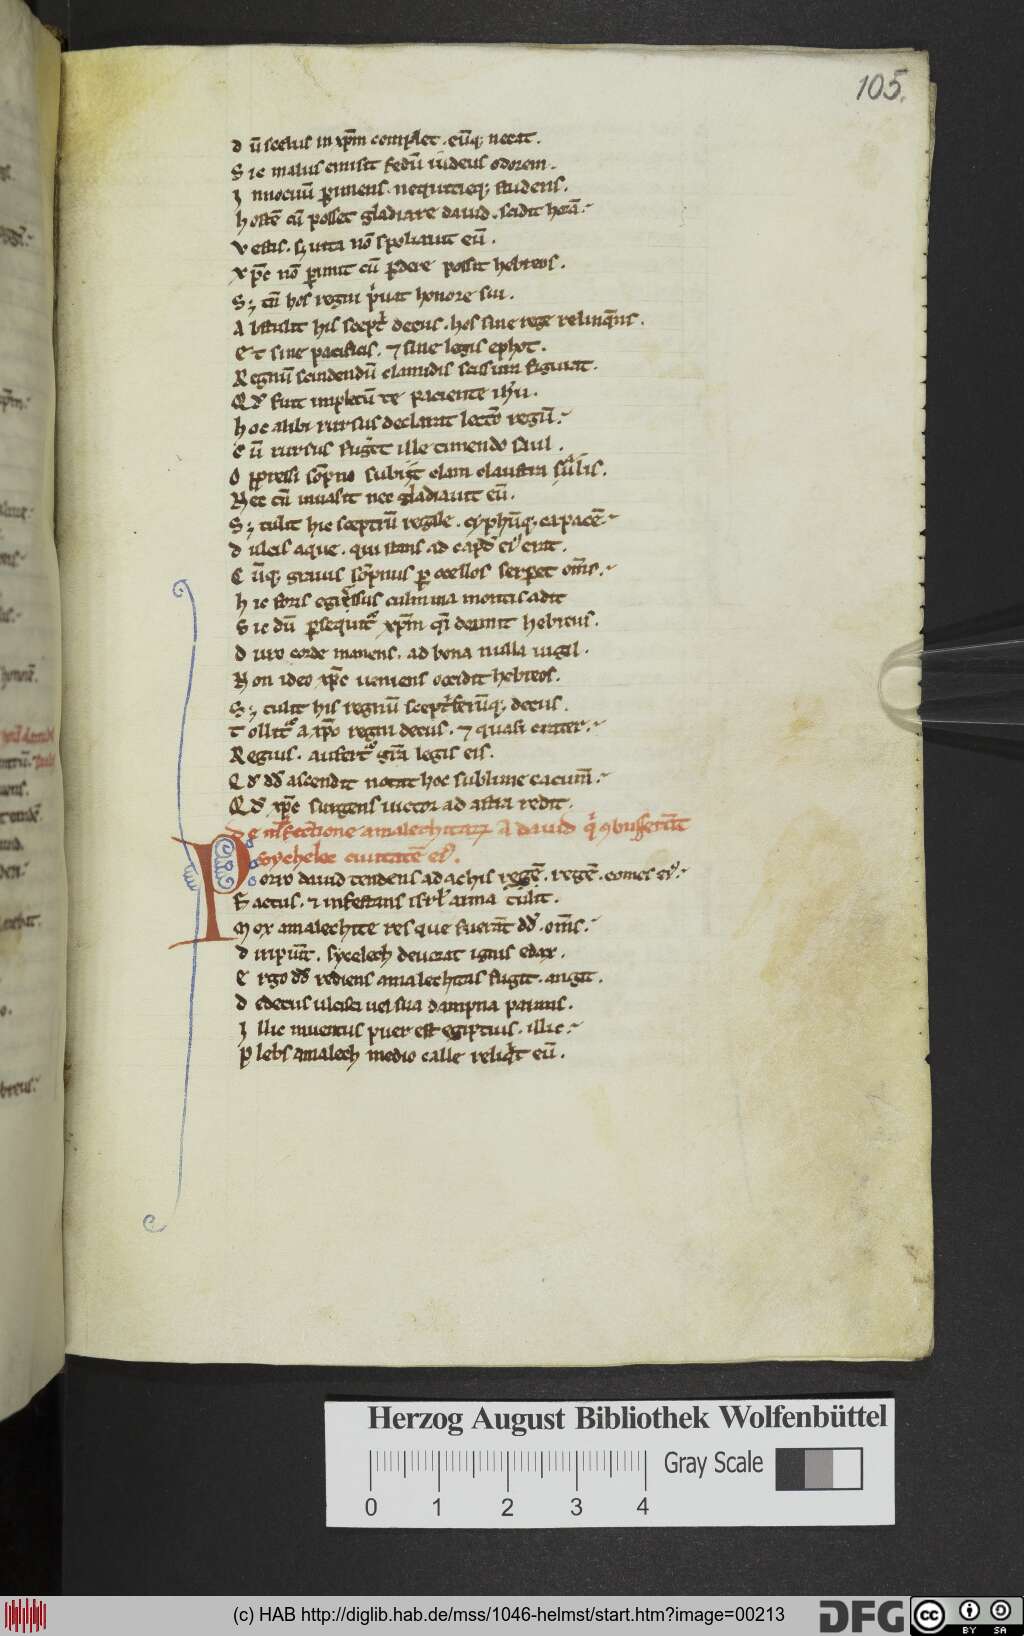 105.
D ū scelus in xp̄m complet. eūq; necat.
S ic malus emisit fedū iudeus odorem.
I nnocuū ꝑimens. nequicieq; studens.
h ostē cū posset gladiare dauid. scidit horā
V estis. sꝫ uita nō spoliauit eū.
xp̄c nō ꝑimit cū ꝑdere possit hebreos.
S ꝫ cū hos regni p̲uat honore sui.
A bstulit his sceptͥ decus. hos sine rege relinq̄ns.
E t sine pacificis. ⁊ sine legis ephot.
R egnū scindendū clamidis scissura figurat.
Q d̓ fuit impletū te paciente ih̓u.
h oc alibi rursus declarat lectio regū.
C ū rursus fugeͥt ille timendo saul.
O ppressi sōpno subiit clam claustra
N ec cū inuasit nec gladiauit eū.
S ꝫ tulit hic sceptrū regale. cyphūq; capacē
D ulcis aque. qui stans ad cap̄d ei᷒ erat.
C ūq; grauis sōpnus ꝑ ocellos serperet om̄s.
h ic foris egressus culmina montis adit
S ic dū ꝑsequit᷑ xp̄m q̄i deuiuit hebreus.
D uro corde manens. ad bona nulla uigil.
N on ideo xp̄c ueniens occidit hebreos.
S ꝫ tulit his regnū sceptͥferūq; decus.
T ollit᷑ a xp̄o regni decus. ⁊ quasi crater
R egius. aufert᷑ gr̄a legis eis.
Q d̓ dd̄ ascendit notat hoc sublime cacum̄.
Q d̓ xp̄c surgens uictor ad astra redit.
De infectione amalechitaꝝ a dauid qͥ ꝯbusserūt
sychelec ciuitatē ei᷒.
P orro dauid tendens ad achis regē. regē. comes ei᷒
F actus. ⁊ infestans isrl̓ arma tulit.
M ox amalechite res que fuerāt dd̓. om̄s.
D iripiūt. sycelech deuorat ignis edax.
E rgo dd̓ rediens amalechitas fugit. angit.
D edecus ulcisci uel sua dampna parans.
I llic inuentus puer est egiptius. illic
P lebs amalech medio calle reliqͥt eū.
Herzog August Bibliothek Wolfenbüttel
Gray Scale
0 1 2 3 4
(c) HAB http://diglib.hab.de/mss/1046-helmst/start.htm?image=00213
DFG
cc BY SA